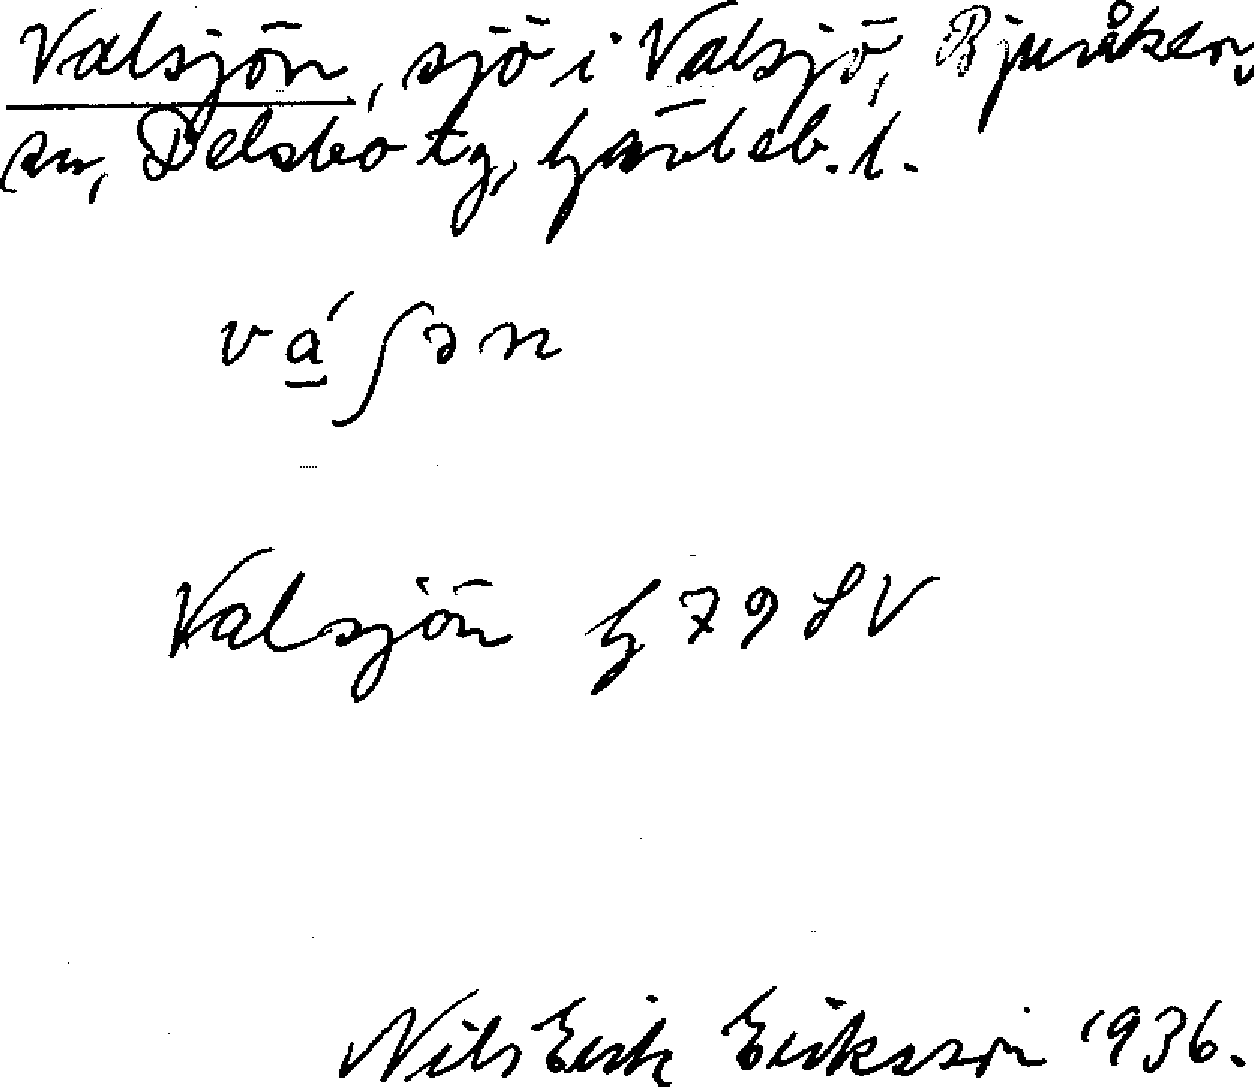 Valsjön, sjö i Valsjö, Bjuråkers
sn, Delsbo tg, Gävleb. l.
vá̱ʃən
Valsjön G 79 SV
Nils Erik Eriksson 1936.